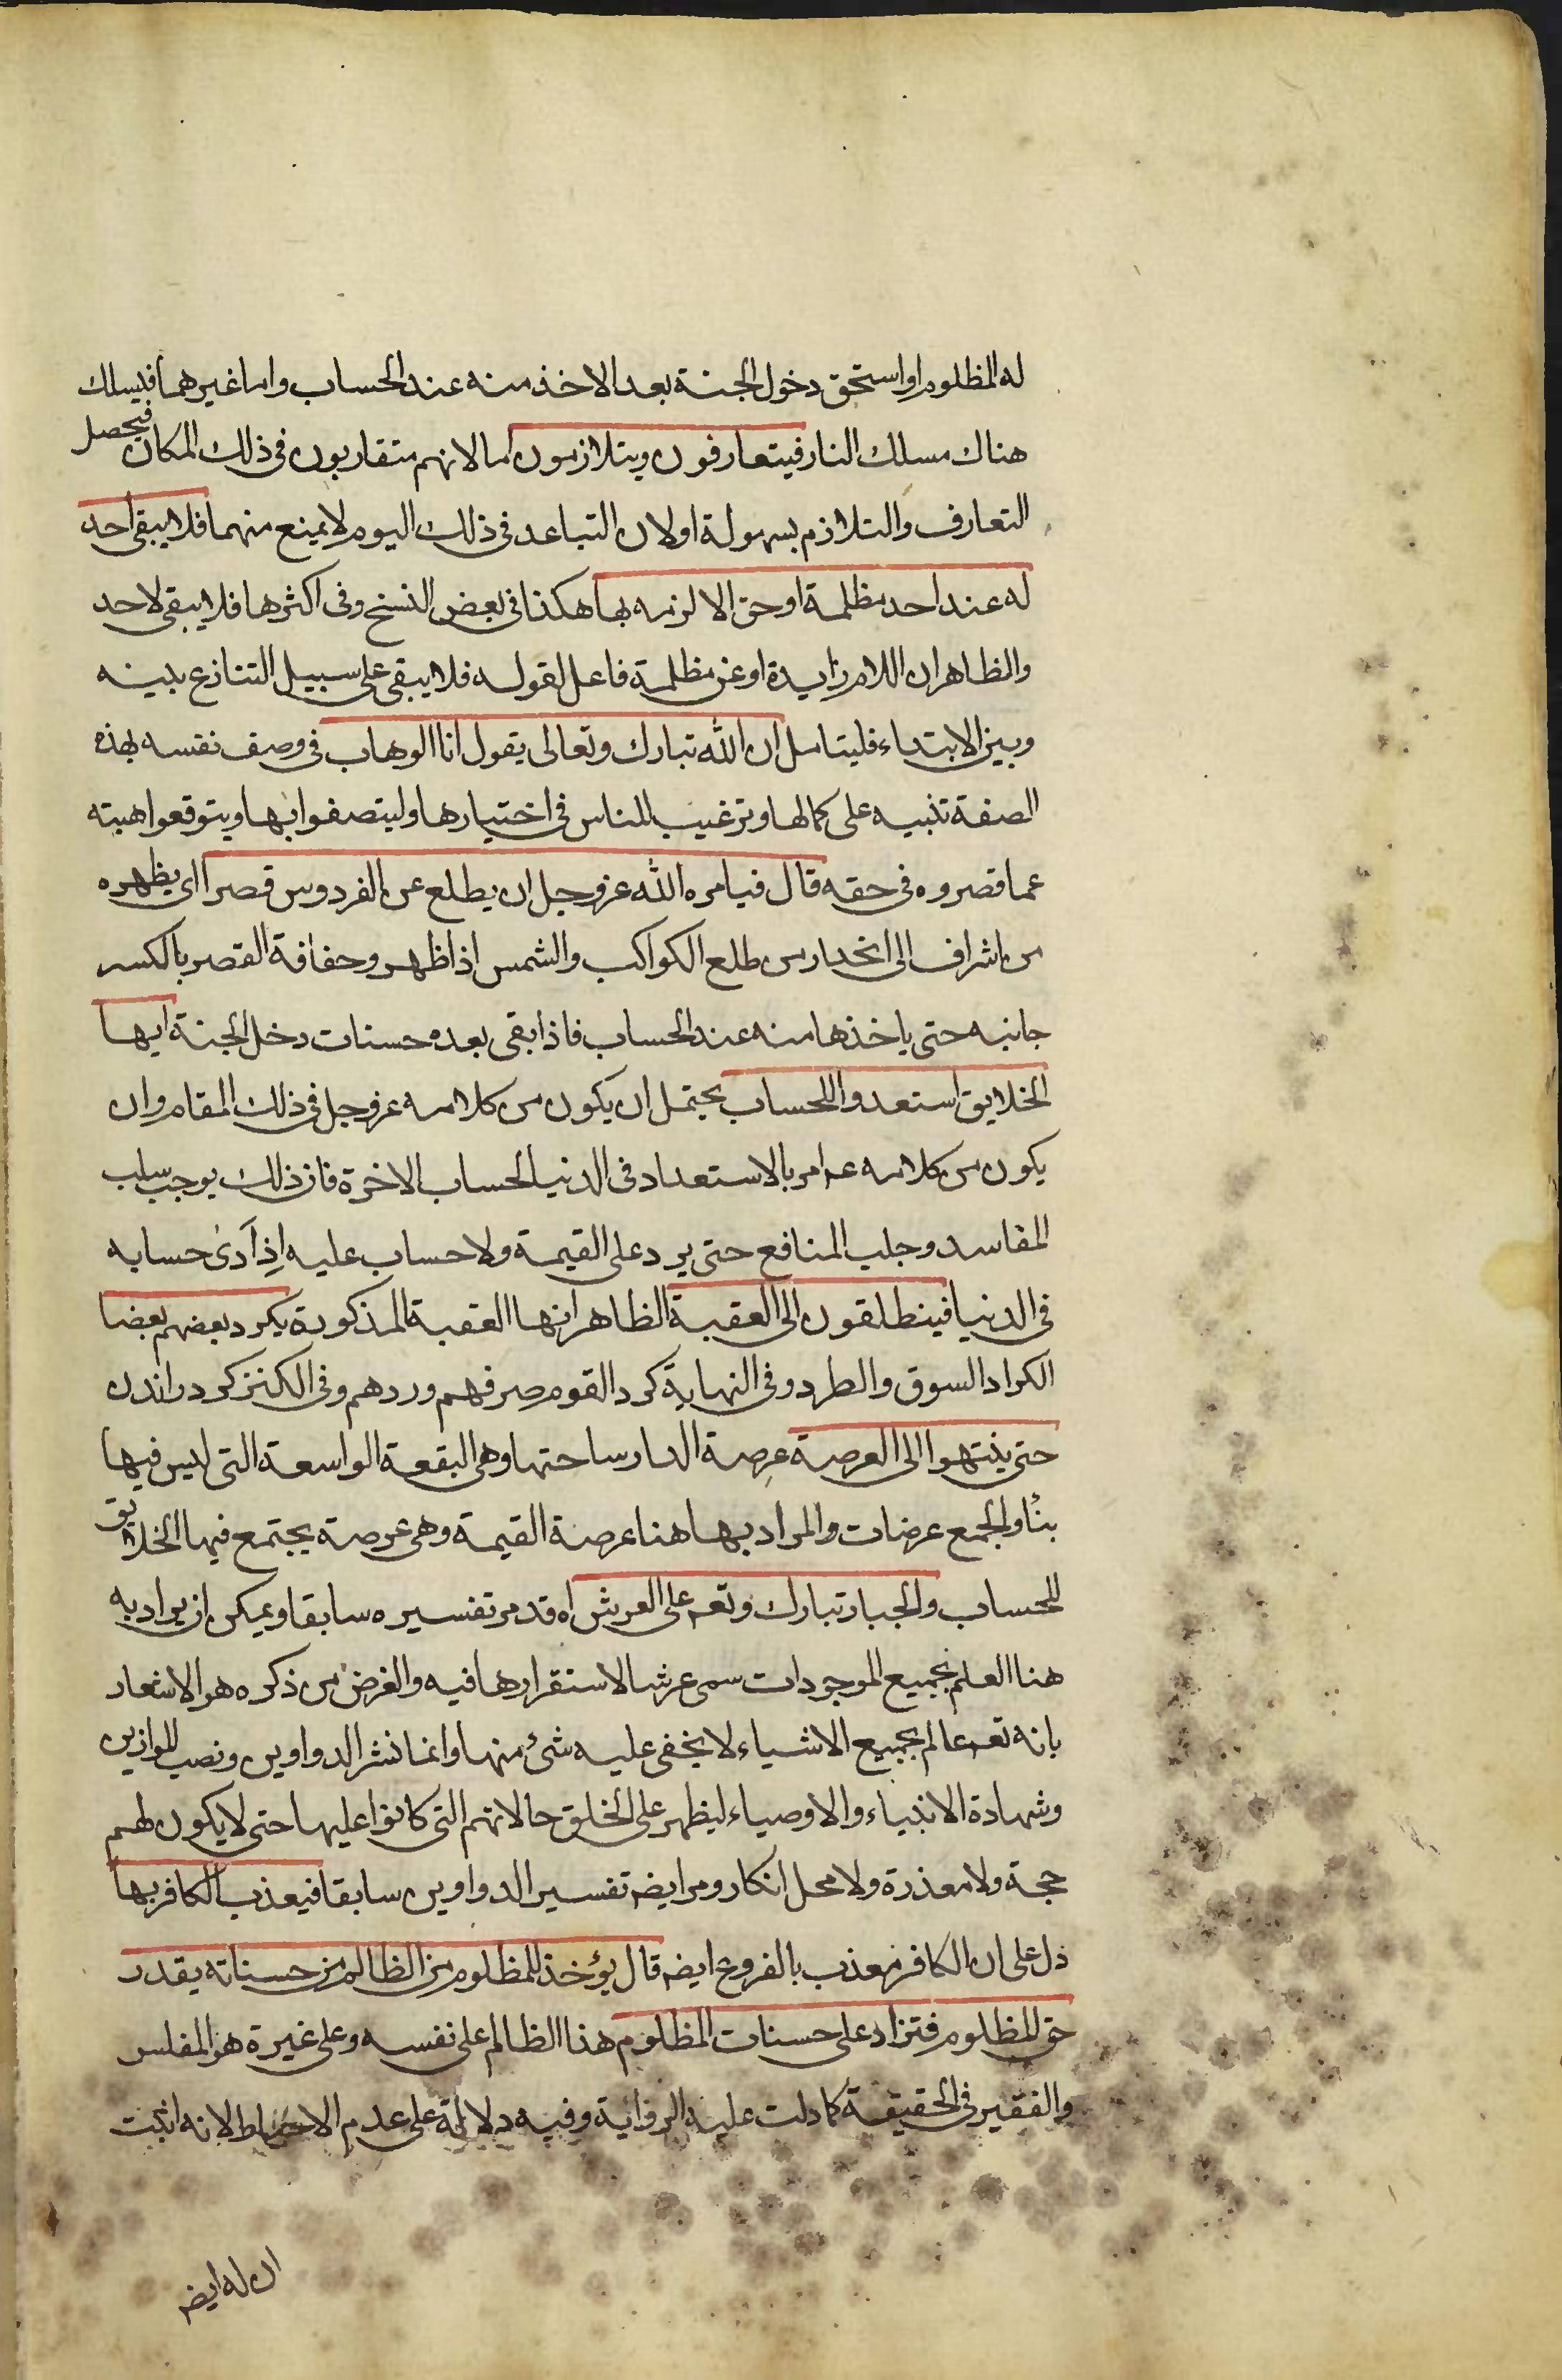 له المظلوم او استحق دخول الجنة بعد الاخذ منه عند الحساب واما غيرهما فيسلك
هناك مسلك النار فيتعارفون ويتلازمون اما لانهم متقاربون فى ذلك المكان فيحصل
التعارف والتلازم بسهولة او لان التباعد فى ذلك اليوم لا يمنع منهما فلا يبقى احد
له عند احد مظلمة او حق الا لزمه بها هكذا فى بعض النسخ وفى اكثرها فلا يبقى لاحد
والظاهر ان اللام زايدة او عن مظلمة فاعل لقوله فلا يبقى على سبيل التنازع بينه
وبين الابتداء فليتامل ان الله تبارك وتعالى يقول انا الوهاب فى وصف نفسه بهذه
الصفة تنبيه على كمالها وترغيب للناس فى اختيارها وليتصفوا بها ويتوقعوا هبته
عما قصروه فى حقه قال فيامره الله عز وجل ان يطلع من الفردوس قصرا اى يظهره
من اشراف الى انحدار من طلع الكواكب والشمس اذا ظهر وحفافة القصر بالكسر
جانبه حتى ياخذها منه عند الحساب فاذا بقى بعده حسنات دخل الجنة ايها
الخلايق استعدوا للحساب يحتمل ان يكون من كلامه عز وجل فى ذلك المقام وان
يكون من كلامه عـ امر بالاستعداد فى الدنيا لحساب الاخرة فان ذلك يوجب سلب
المفاسد وجلب المنافع حتى يرد على القيمة ولا حساب عليه اِذ اَدىٰ حسابه
فى الدنيا فينطلقون الى العقبة الظاهر انها العقبة المذكورة يكرد بعضهم بعضا
الكراد السوق والطرد وفى النهاية كرد القوم صرفهم وردهم وفى الكنز كرد راندن
حتى ينتهوا الى العرصة عرصة الدار ساحتها وهى البقعة الواسعة التى ليس فيها
بنأ والجمع عرصات والمراد بها هنا عرصة القيمة وهى عرصة يجتمع فيها الخلايق
للحساب والجبار تبارك وتعـ على العرش اه قد مر تفسيره سابقا ويمكن ان يراد به
هنا العلم بجميع الموجودات سمى عرشا لاستقرارها فيه والغرض من ذكره هو الاشعار
بانه تعـ عالم بجميع الاشياء لا يخفى عليه شئ منها وانما نشر الدواوين ونصب الموازين
وشهادة الانبياء والاوصياء ليظهر على الخلق حالاتهم التى كانوا عليها حتى لا يكون لهم
حجة ولا معذرة ولا محل انكار ومر ايضـ تفسير الدواوين سابقا فيعذب الكافر بها
دل على ان الكافر معذب بالفروع ايضـ قال يؤخذ للمظلوم من الظالم من حسناته بقدر
حق المظلوم فتزاد على حسنات المظلوم هذا الظالم على نفسه وعلى غيره هو المفلس
والفقير فى الحقيقة كما دلت عليه الرواية وفيه دلالة على عدم الاحباط لانه اثبت
ان له ايضـ